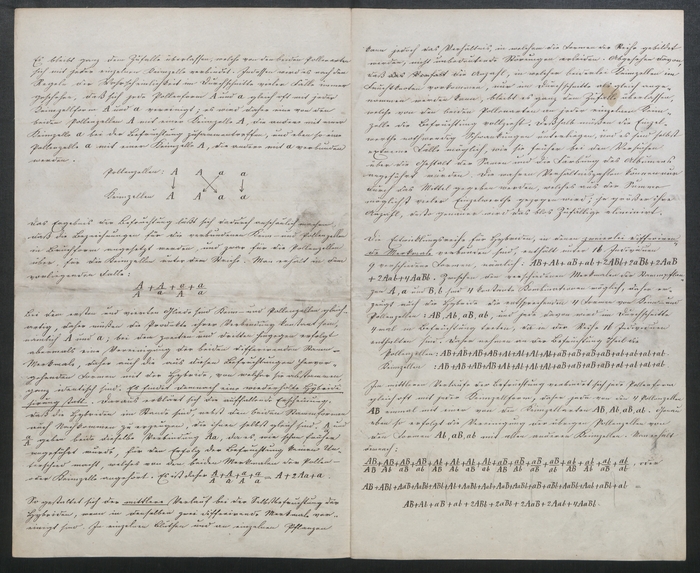 Es bleibt ganz dem Zufalle überlassen, welche von den beiden Pollenarten
sich mit jeder einzelnen Keimzelle verbindet. Indessen wird es nach den
Regeln der Wahrscheinlichkeit im Durchschnitte vieler Fälle immer
geschehen, dass sich jede Pollenform A und a gleich oft mit jeder
Keimzellform A und a vereinigt; es wird daher eine von den
beiden Pollenzellen A mit einer Keimzelle A, die andere mit einer
Keimzelle a bei der Befruchtung zusammentreffen, und eben so eine
Pollenzelle a mit einer Keimzelle A, die andere mit a verbunden
werden.
Pollenzellen: A A a a
Keimzellen A A a a
Das Ergebniss der Befruchtung lässt sich dadurch anschaulich machen,
dass die Bezeichnungen für die verbundenen Keim- und Pollenzellen
in Bruchform angesetzt werden, und zwar für die Pollenzellen
über, für die Keimzellen unter dem Striche. Man erhält in dem
vorliegenden Falle:
A/A + A/a + a/A + a/a
Bei dem ersten und vierten Gliede sind Keim- und Pollenzellen gleich-
artig, daher müssen die Producte ihrer Verbindung constant sein,
nämlich A und a; bei dem zweiten und dritten hingegen erfolgt
abermals eine Vereinigung der beiden differirenden Stamm-
Merkmale, daher auch die aus diesen Befruchtungen hervor-
gehenden Formen mit der Hybride, von welcher sie abstammen
ganz identisch sind. Es findet demnach eine wiederholte Hybridi-
sirung statt. Daraus erklärt sich die auffallende Erscheinung,
dass die Hybriden im Stande sind, nebst den beiden Stammformen
auch Nachkommen zu erzeugen, die ihnen selbst gleich sind; A/a und
a/A geben beide dieselbe Verbindung Aa, da es, wie schon früher
angeführt wurde, für den Erfolg der Befruchtung keinen Un-
terschied macht, welches von den beiden Merkmalen der Pollen-
oder Keimzelle angehört. Es ist daher A/A + A/a + a/A + a/a = A + 2Aa + a.
So gestaltet sich der mittlere Verlauf bei der Selbstbefruchtung der
Hybriden, wenn in denselben zwei differirende Merkmale ver-
einigt sind. In einzelnen Blüthen und an einzelnen Pflanzen
kann jedoch das Verhältniss, in welchem die Formen der Reihe gebildet
werden, nicht unbedeutende Störungen erleiden. Abgesehen davon,
dass die Anzahl, in welcher beiderlei Keimzellen im
Fruchtknoten vorkommen, nur im Durchschnitte als gleich ange-
nommen werden kann, bleibt es ganz dem Zufalle überlassen,
welche von den beiden Pollenarten an jeder einzelnen Keim-
zelle die Befruchtung vollzieht. Desshalb müssen die Einzel-
werthe nothwendig Schwankungen unterliegen, und es sind selbst
extreme Fälle möglich, wie sie früher bei den Versuchen
über die Gestalt der Samen und die Färbung des Albumens
angeführt wurden. Die wahren Verhältnisszahlen können nur
durch das Mittel gegeben werden, welches aus der Summe
möglichst vieler Einzelwerthe gezogen wird; je grösser ihre
Anzahl, desto genauer wird das blos Zufällige eliminirt.
Die Entwicklungsreihe für Hybriden, in denen zweierlei differirende
Merkmale verbunden sind, enthält unter 16 Individuen
9 verschiedene Formen, nämlich: AB+Ab+aB+ab+2ABb+2aBb+2AaB
+2Aab+4AaBb. Zwischen den verschiedenen Merkmalen der Stammpflan-
zen A, a und B, b sind 4 constante Combinationen möglich, daher er-
zeugt auch die Hybride die entsprechenden 4 Formen von Keim- und
Pollenzellen: AB, Ab, aB, ab, und jede davon wird im Durchschnitte
4 mal in Befruchtung treten, da in der Reihe 16 Individuen
enthalten sind. Daher nehmen an der Befruchtung Theil die
Pollenzellen: AB+AB+AB+AB+Ab+Ab+Ab+Ab+aB+aB+aB+aB+ab+ab+ab+ab.
Keimzellen AB+AB+AB+AB+Ab+Ab+Ab+Ab+aB+aB+aB+aB+ab+ab+ab+ab.
Im mittleren Verlaufe der Befruchtung verbindet sich jede Pollenform
gleich oft mit jeder Keimzellform, daher jede von den 4 Pollenzellen
AB einmal mit einer von den Keimzellarten AB, Ab, aB, ab. Genau
eben so erfolgt die Vereinigung der übrigen Pollenzellen von
den Formen Ab, aB, ab mit allen anderen Keimzellen. Man erhält
demnach:
AB/AB + AB/Ab + AB/aB + AB/ab + Ab/AB + Ab/Ab + Ab/aB + Ab/ab + aB/AB + aB/Ab + aB/aB + aB/ab + ab/AB + ab/Ab + ab/aB + ab/ab, oder
AB+ABb+AaB+AaBb+ABb+Ab+AaBb+Aab+AaB+AaBb+aB+aBb+AaBb+Aab+aBb+ab =
AB+Ab+aB+ab+2ABb+2aBb+2AaB+2Aab+4AaBb.